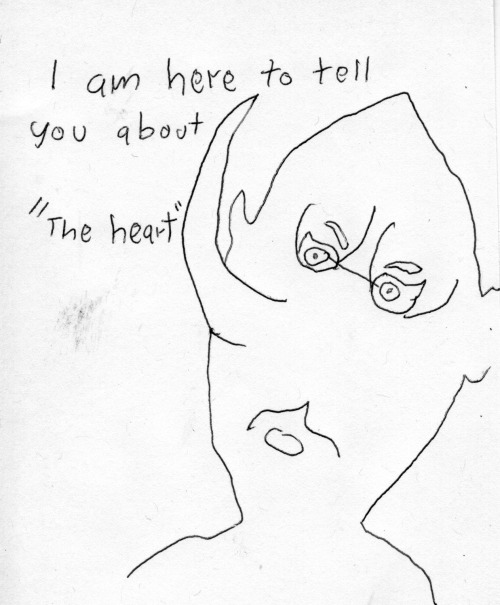 I am here to tell
you about
"The heart"